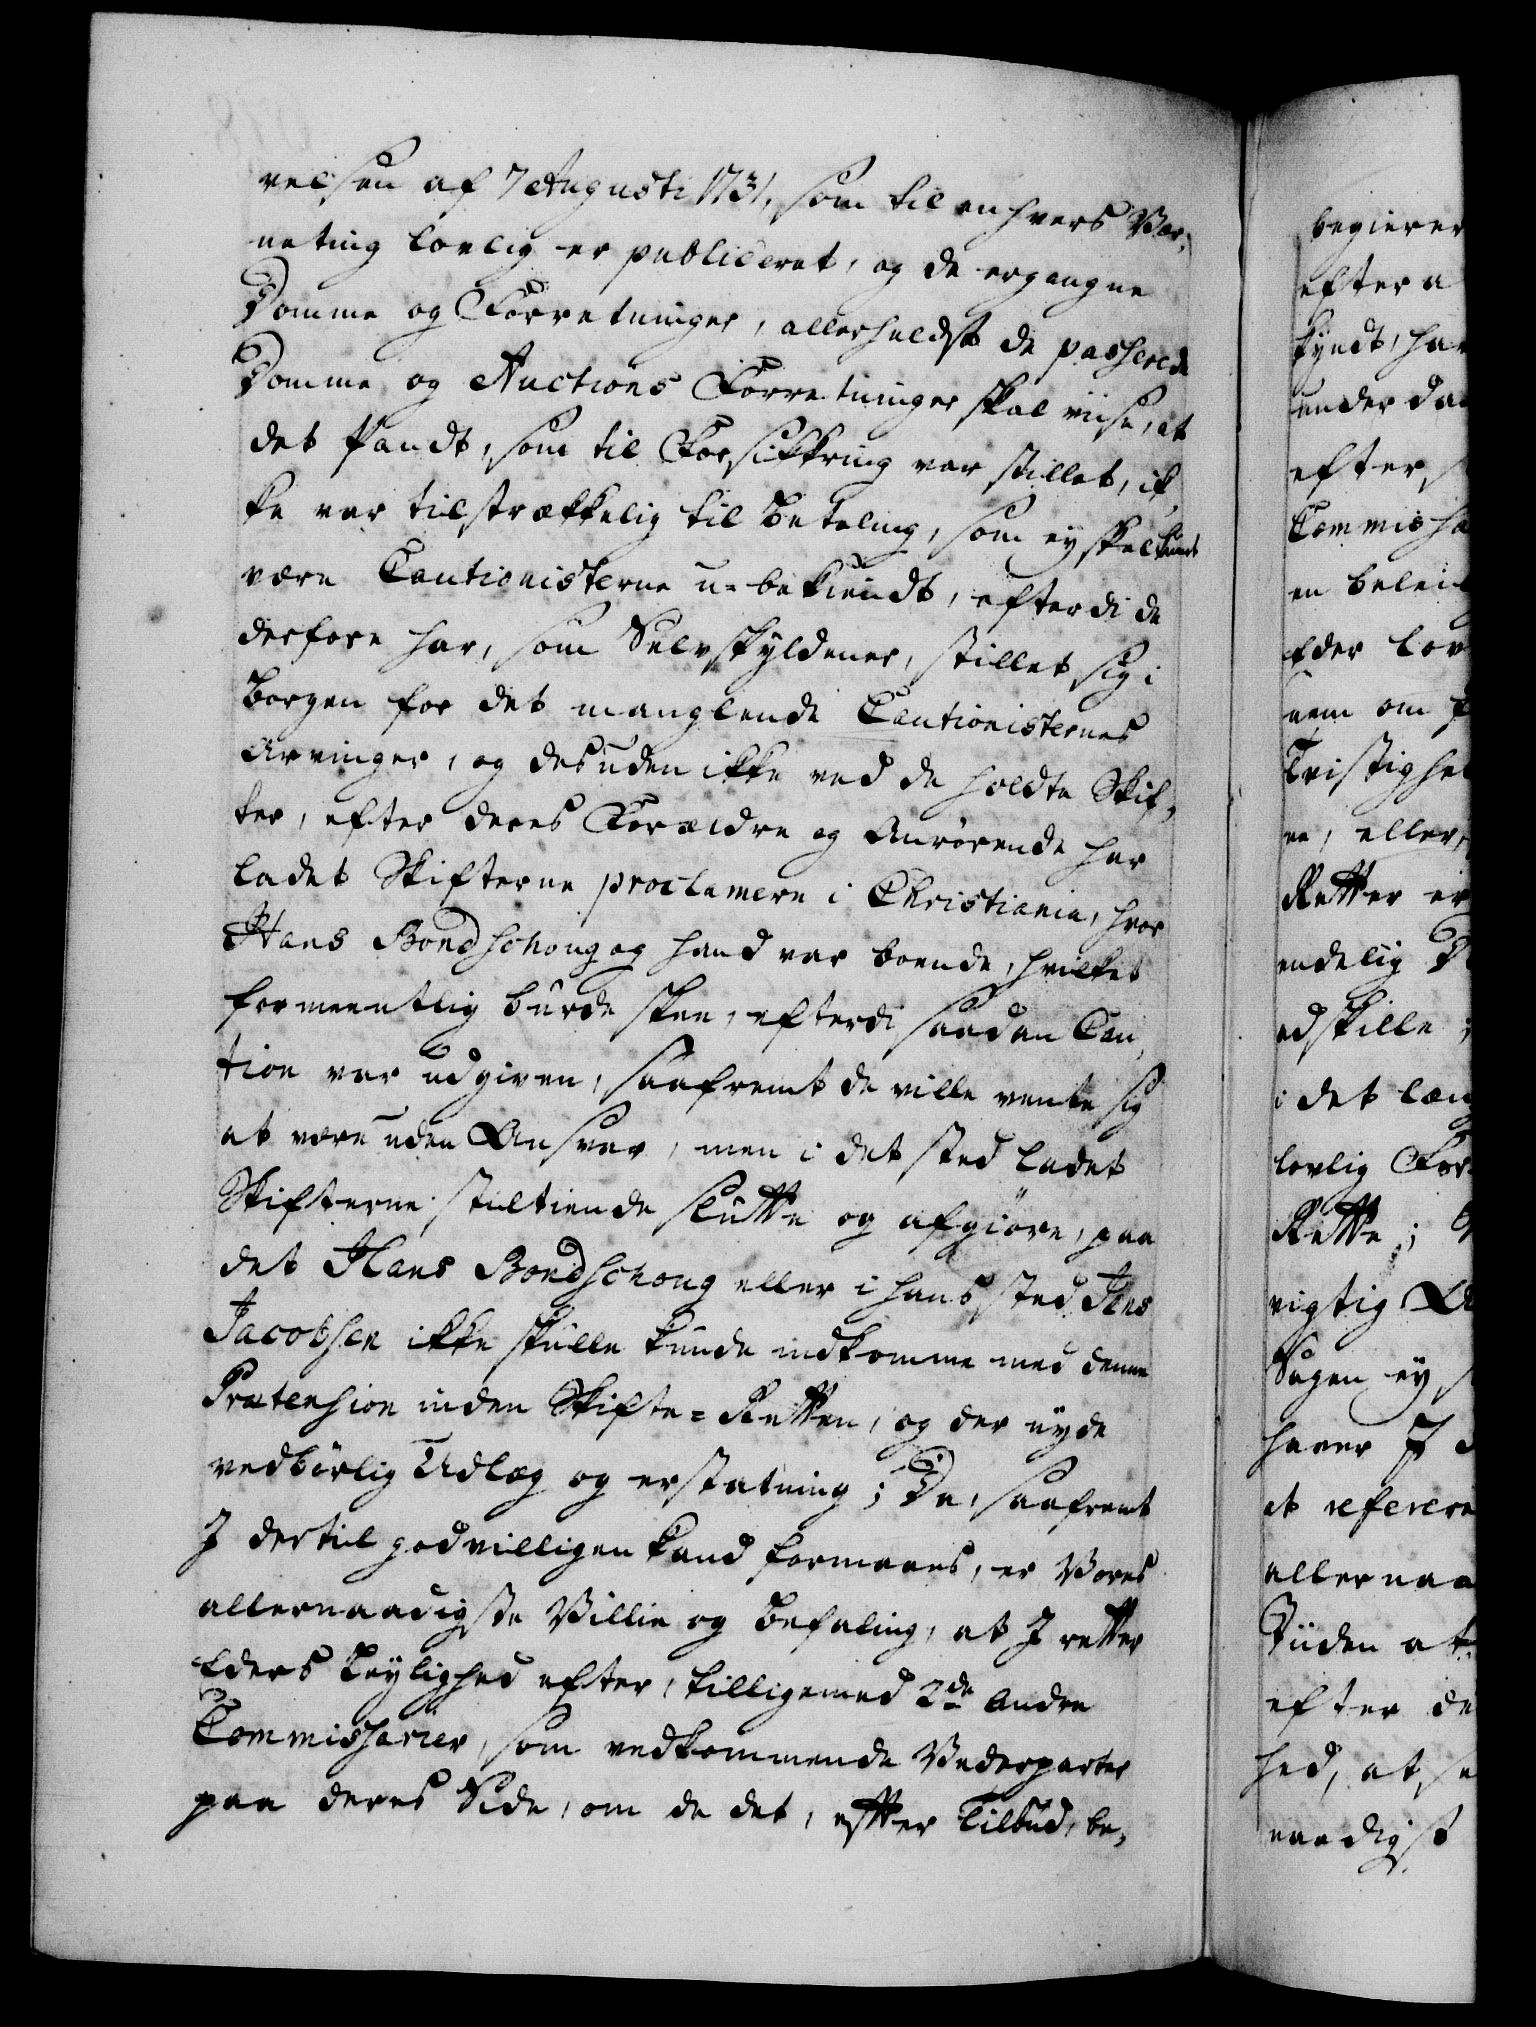 velsen af 7 Augusti 1731, som til enhvers Ver-
neting lovlig er publiceret, og de ergangne
Domme og Forretninger, allerhelst de passerede
Domme og Auctions Forretninger skal viise, at
det Pandt, som til Forsikkring var stillet, ik-
ke var tilstrækkelig til Betaling, som ey skal kunde
være Cautionisterne u-bekiendt, efterdi de
derfore har, som Selvskyldener, stillet sig i
Borgen for det manglende Cautionisternes
Arvinger, og desuden ikke ved de holdte Skif-
ter, efter deres Forældre og Anrørende har
ladet Skifterne proclamere i Christiania, hvor
Hans Bondschoug og hand var boende, hvilket
formeentlig burde skee, efterdi saadan Cau-
tion var udgiven, saafremt de ville vente sig
at være uden Ansvar, men i det sted ladet
Skifterne stiltiende slutte og afgiøre, paa
det Hans Bondschoug eller i hans sted Jens
Jacobsen ikke skulle kunde indkomme med denne
Prætension inden Skifte-Retten, og der nyde
vedbørlig Udlæg og erstatning; Da, saafremt
I dertil godvilligen kand formaaes, er Vores
allernaadigste Villie og Befaling, at I retter
Eders Leylighed efter, tilligemed 2de andre
Commissarier, som vedkommende Vederparter
paa deres Side, om de det, efter Tilbud, be-
begierer
efter a
kyndt, har
under da
efter,
Commissa
en beleil
Eder lov
nem om
Tvistighe
ne, eller,
Retter er
endelig
adskille
i det læn
lovlig For
Rette;
rigtig
Sagen ey
haver I
at referere
allernaa
Tiiden at
efter de
hed, at
naadigst